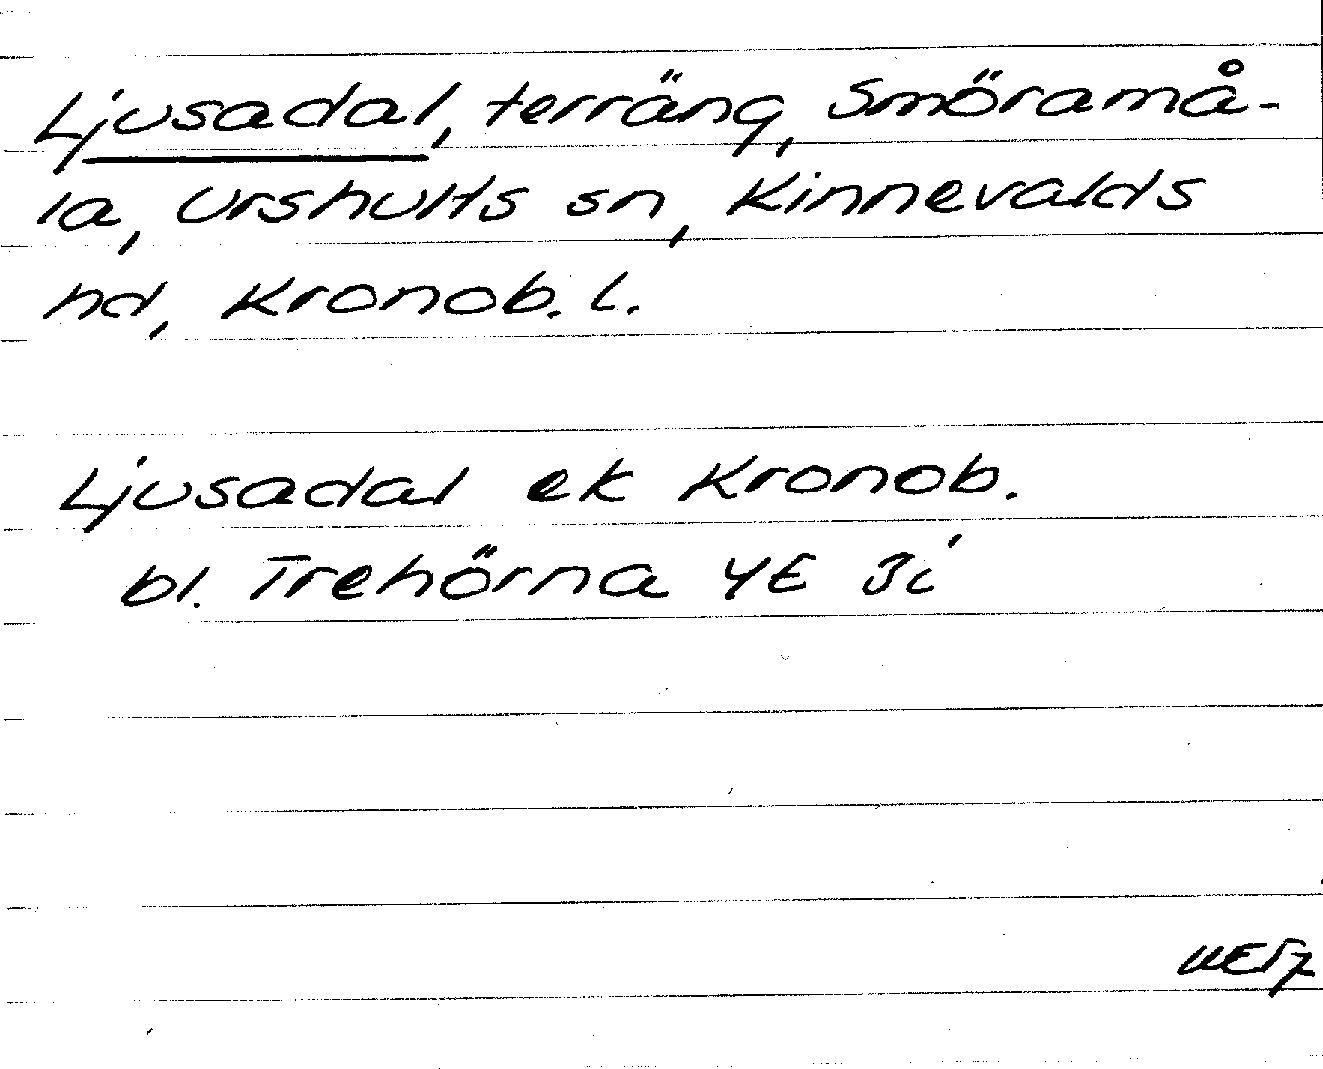 Ljusadal, terräng, Smöramå-
la, Urshults sn, Kinnevalds
hd, Kronob. l.
Ljusadal ek Kronob.
bl. Trehörna 4E 3i